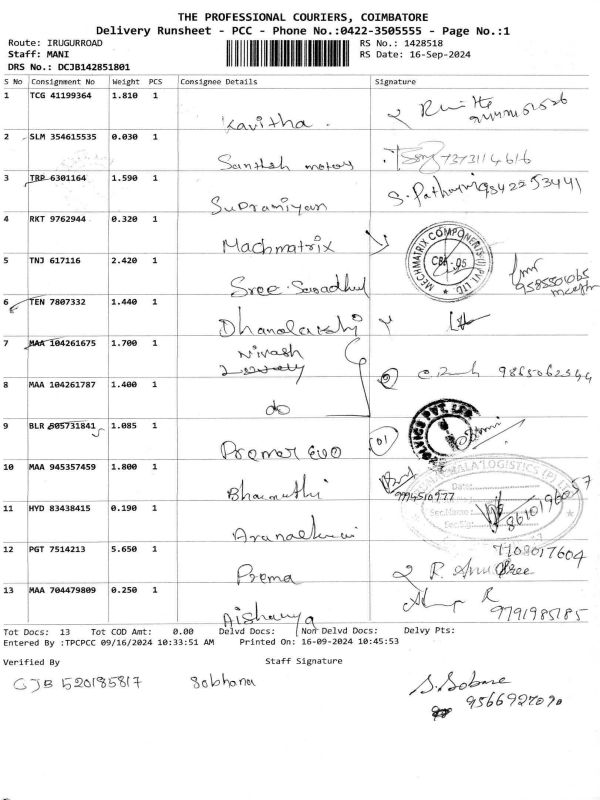 THE PROFESSIONAL COURIERS, COIMBATORE
Delivery Runsheet - PCC - Phone No.:0422-3505555 - Page No.:1
Route: IRUGURROAD RS No.: 1428518
Staff: MANI RS Date: 16-Sep-2024
DRS No.: DCJB142851801
S No Consignment No Weight PCS Consignee Details Signature
1 TCG 41199364 1.810 1
Kavitha.
2 SLM 354615535 0.030 1
Santhsh motors 7373114616
3 TRP 6301164 1.590 1
Supramiyan S. 9842253441
4 RKT 9762944 0.320 1
Machmatrix
MECHMATRIX COMPONENTS (I) PVT. LTD
CBE-05
5 TNJ 617116 2.420 1
Sree. 9585501065
6 TEN 7807332 1.440 1
Dhanalakshi
7 MAA 104261675 1.700 1
Nivash
9865062544
8 MAA 104261787 1.400 1
do
9 BLR 505731841 1.085 1
Premer Evo 01
10 MAA 945357459 1.800 1
Bharmathi 9994510977
LOGISTICS (P) LTD
Date:
Sec.Name:
Sec.Sig:
8610196057
11 HYD 83438415 0.190 1
7708017604
12 PGT 7514213 5.650 1
Prema R. Anu Sree
13 MAA 704479809 0.250 1
Aishwarya 9791985785
Tot Docs: 13 Tot COD Amt: 0.00 Delvd Docs: Non Delvd Docs: Delvy Pts:
Entered By :TPCPCC 09/16/2024 10:33:51 AM Printed On: 16-09-2024 10:45:53
Verified By Staff Signature
CJB 520185817 Sobhana S. Sobana
9566927090